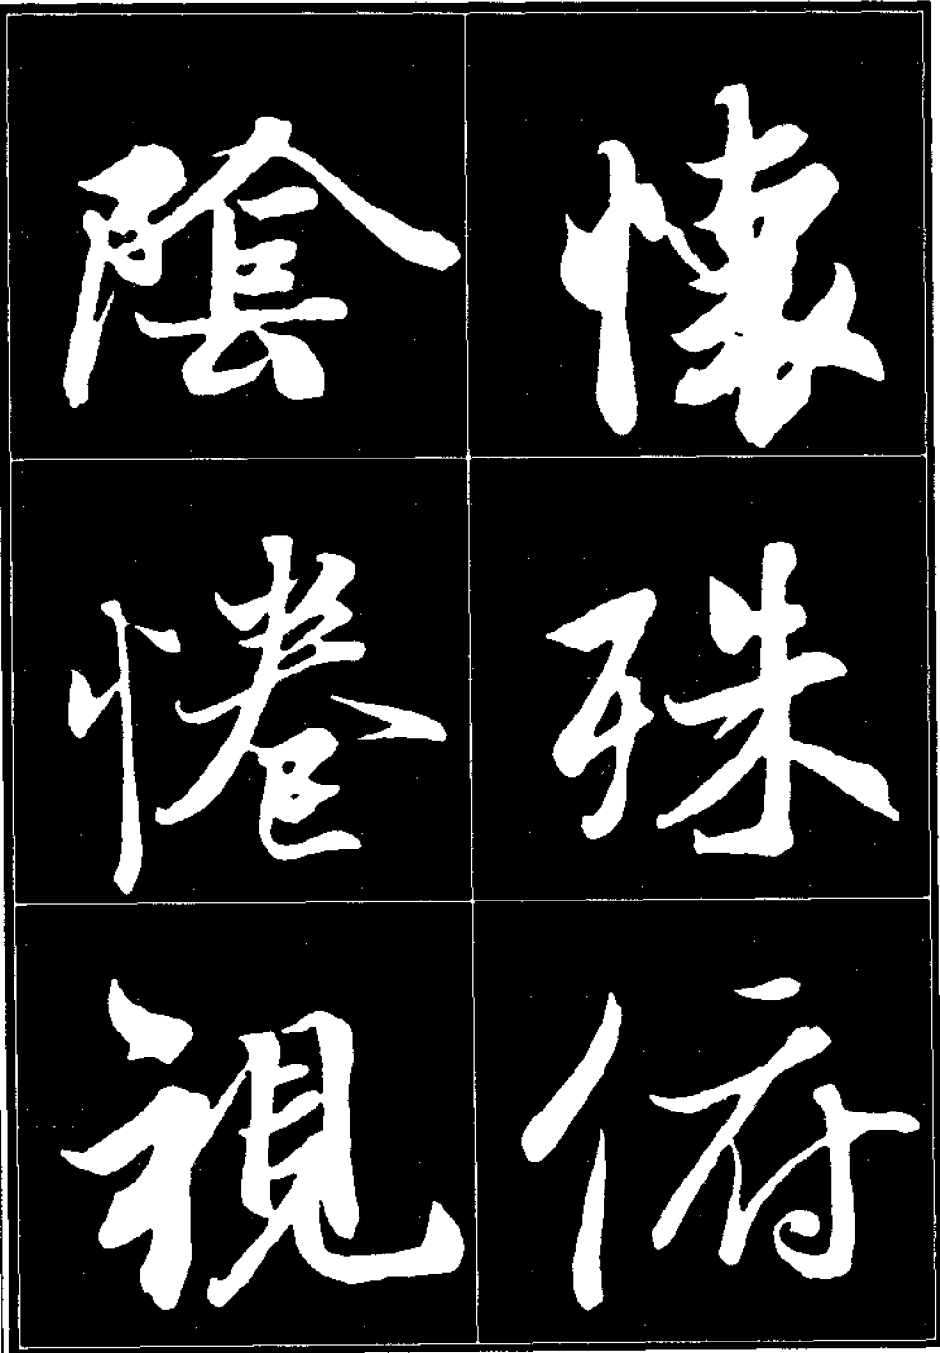 懷殊俯
陰惓視